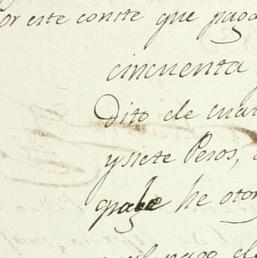 or este conste que pago
cincuenta
dito de cuat
ysiete Pesos,
he otor
pago de